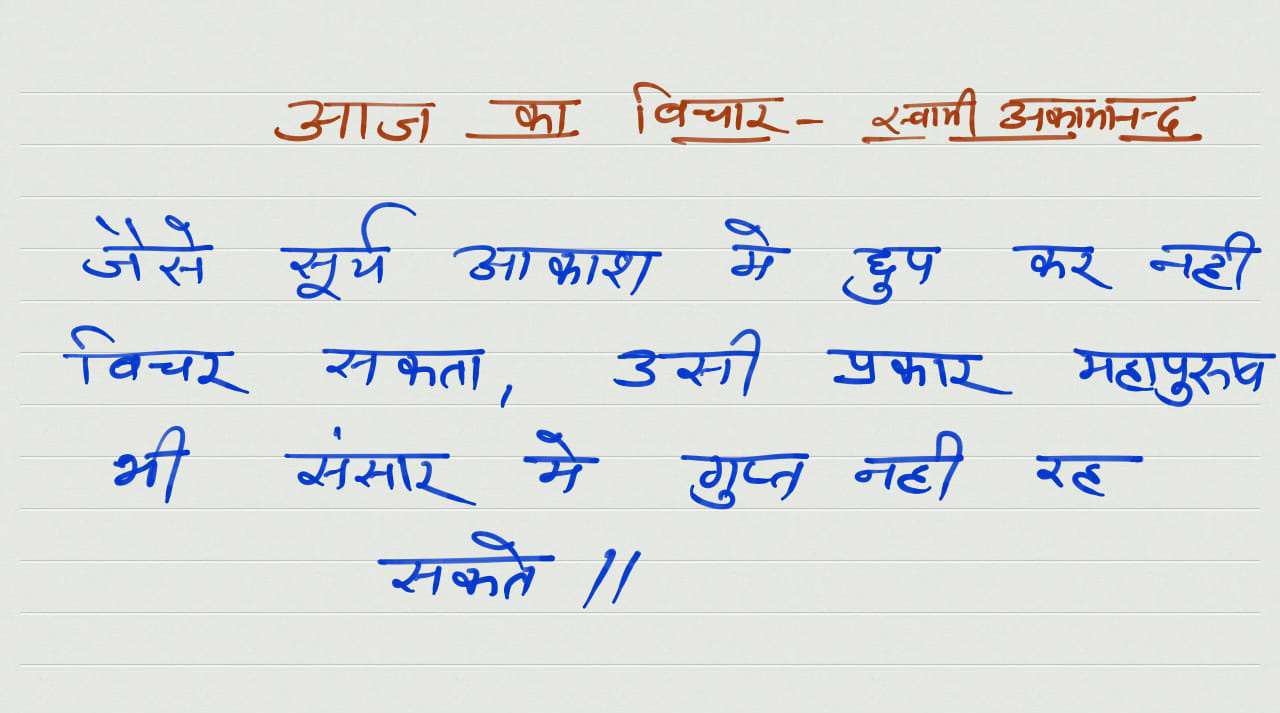 आज का विचार - स्वामी अकामानन्द
जैसे सूर्य आकाश मे छुप कर नही
विचर सकता, उसी प्रकार महापुरुष
भी संसार मे गुप्त नही रह
सकते //